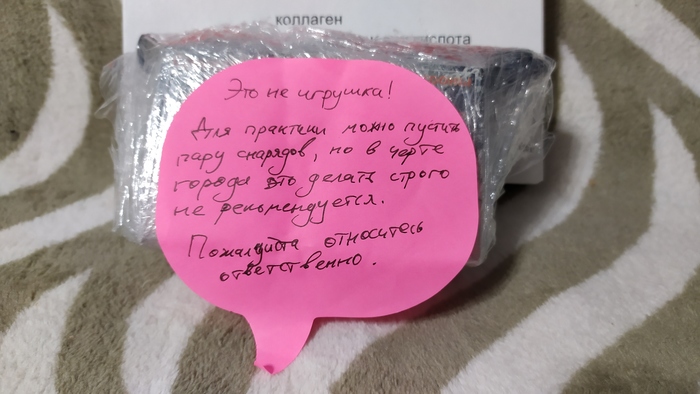 коллаген
кислота
Это не игрушка!
Для практики можно пустить
пару снарядов, но в черте
города это делать строго
не рекомендуется.
Пожалуйста относитесь
ответственно.